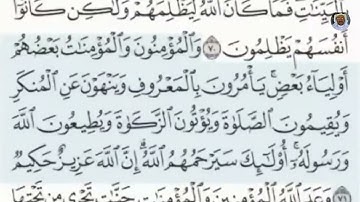 بِالْبَيِّنَٰتِ فَمَا كَانَ ٱللَّهُ لِيَظْلِمَهُمْ وَلَٰكِن كَانُوٓا۟
أَنفُسَهُمْ يَظْلِمُونَ ٧٠ وَٱلْمُؤْمِنُونَ وَٱلْمُؤْمِنَٰتُ بَعْضُهُمْ
أَوْلِيَآءُ بَعْضٍۚ يَأْمُرُونَ بِٱلْمَعْرُوفِ وَيَنْهَوْنَ عَنِ ٱلْمُنكَرِ
وَيُقِيمُونَ ٱلصَّلَوٰةَ وَيُؤْتُونَ ٱلزَّكَوٰةَ وَيُطِيعُونَ ٱللَّهَ
وَرَسُولَهُۥٓۚ أُو۟لَٰٓئِكَ سَيَرْحَمُهُمُ ٱللَّهُۗ إِنَّ ٱللَّهَ عَزِيزٌ حَكِيمٌ ٧١
وَعَدَ ٱللَّهُ ٱلْمُؤْمِنِينَ وَٱلْمُؤْمِنَٰتِ جَنَّٰتٍ تَجْرِى مِن تَحْتِهَا